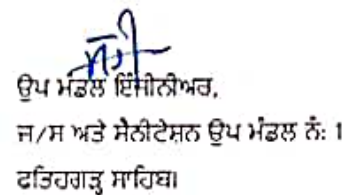 ਉਪ ਮੰਡਲ ਇੰਜੀਨੀਅਰ,
ਜ/ਸ ਅਤੇ ਸੈਨੀਟੇਸ਼ਨ ਉਪ ਮੰਡਲ ਨੰ: 1
ਫਤਿਹਗੜ੍ਹ ਸਾਹਿਬ।